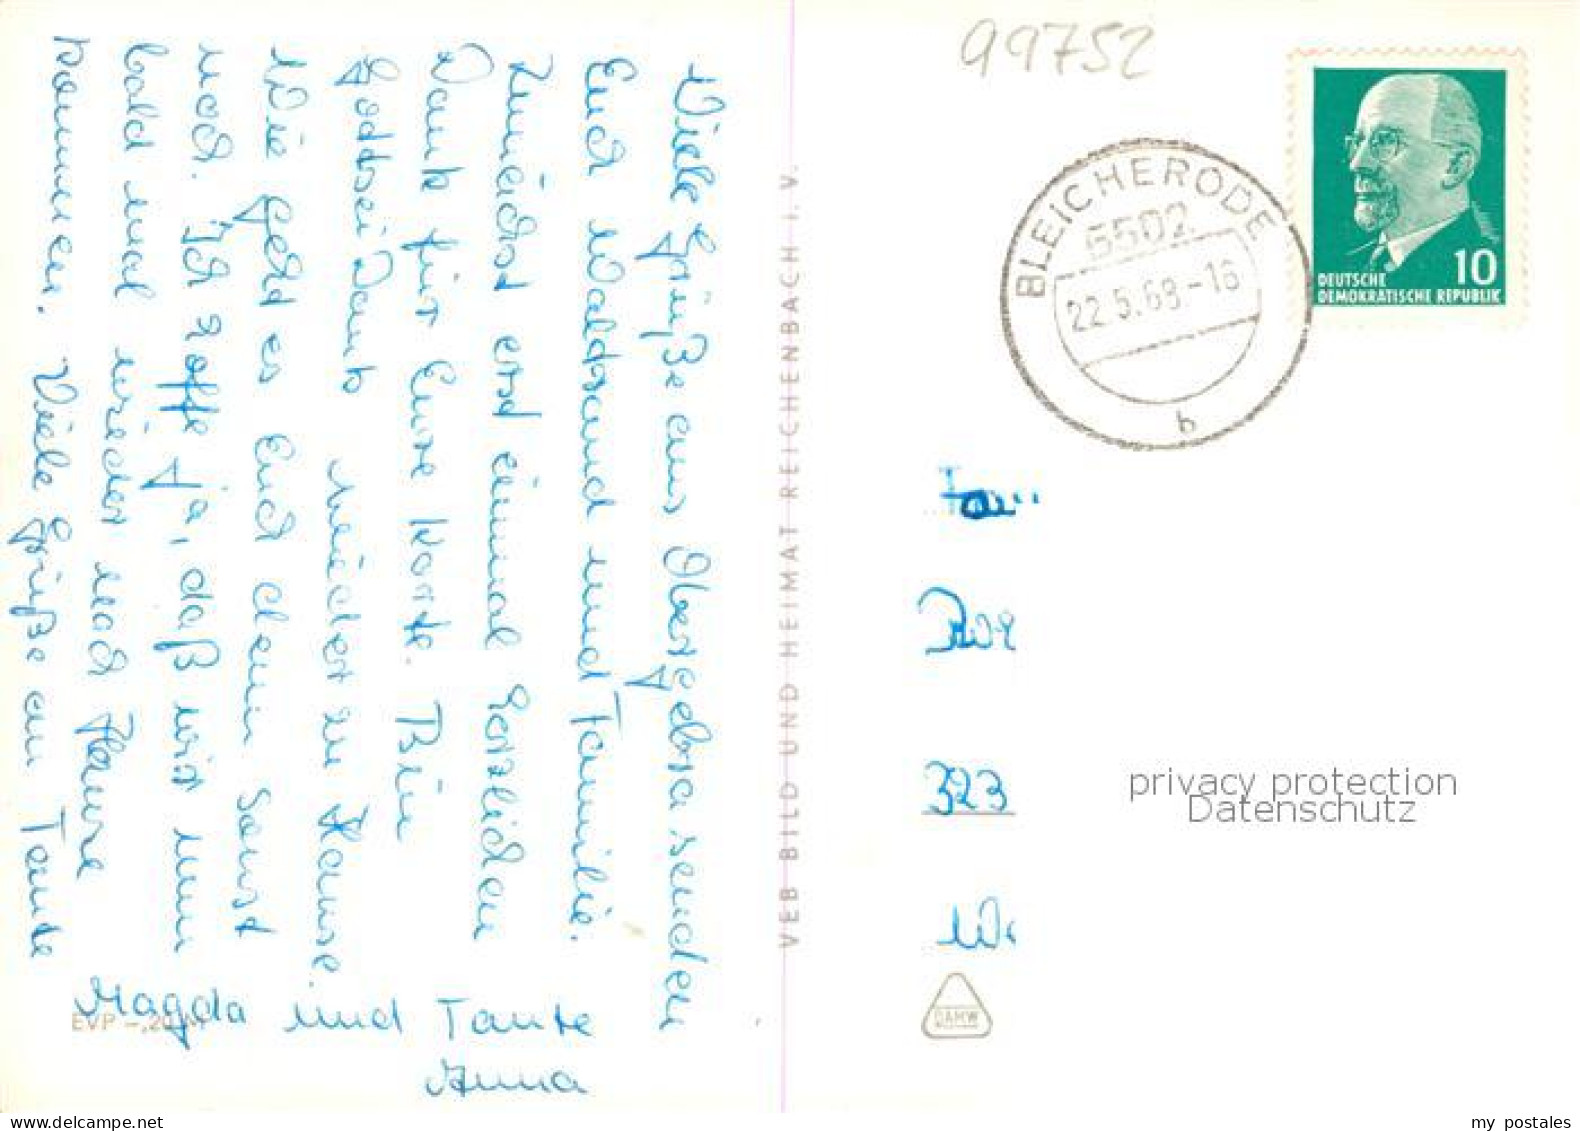 Viele Grüße aus Obergebra senden
Euch Waldtraud und Familie.
Zunächst erst einmal herzlichen
Dank für Eure Karte. Bin
Gottsei Dank wieder zu Hause.
Wie geht es Euch denn sonst
noch. Ich hoffe ja, daß wir nun
bald mal wieder nach Hause
kommen. Viele Grüße an Tante
Magda und Tante
Anna
EVP –,20 M
VEB BILD UND HEIMAT REICHENBACH I. V.
99752
BLEICHERODE
5502
22.5.68-16
b
10
DEUTSCHE
DEMOKRATISCHE REPUBLIK
Fam
323
DAMW
privacy protection
Datenschutz
my postales